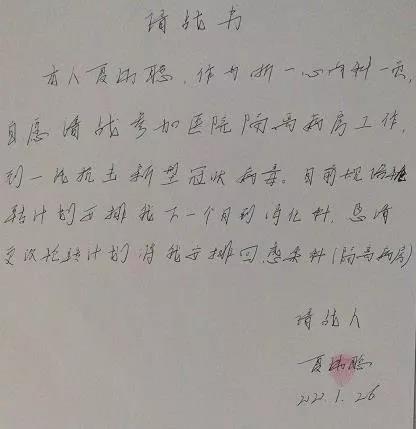 请战书
本人夏雨聪,作为浙一心内科一员,
自愿请战参加医院隔离病房工作,
到一线抗击新型冠状病毒。目前规培轮
转计划安排我下一个月到消化科,恳请
更改轮转计划将我安排回感染科(隔离病房)
请战人
夏雨聪
2020.1.26